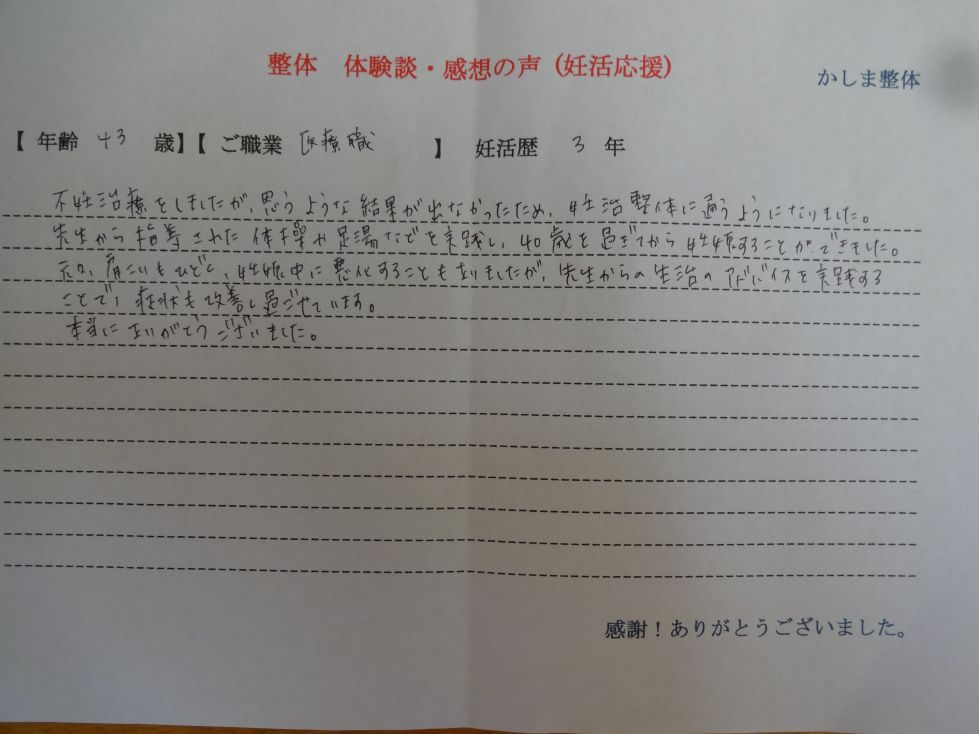 整体 体験談・感想の声（妊活応援）
かしま整体
【 年齢 43 歳】【 ご職業 医療職 】 妊活歴 3 年
不妊治療をしましたが、思うような結果が出なかったため、妊活整体に通うようになりました。
先生から指導された体操や足湯などを実践し、40歳を過ぎてから妊娠することができました。
元々、肩こりもひどく、妊娠中に悪化することもありましたが、先生からの生活のアドバイスを実践する
ことで、症状も改善し過ごせています。
本当にありがとうございました。
感謝！ありがとうございました。